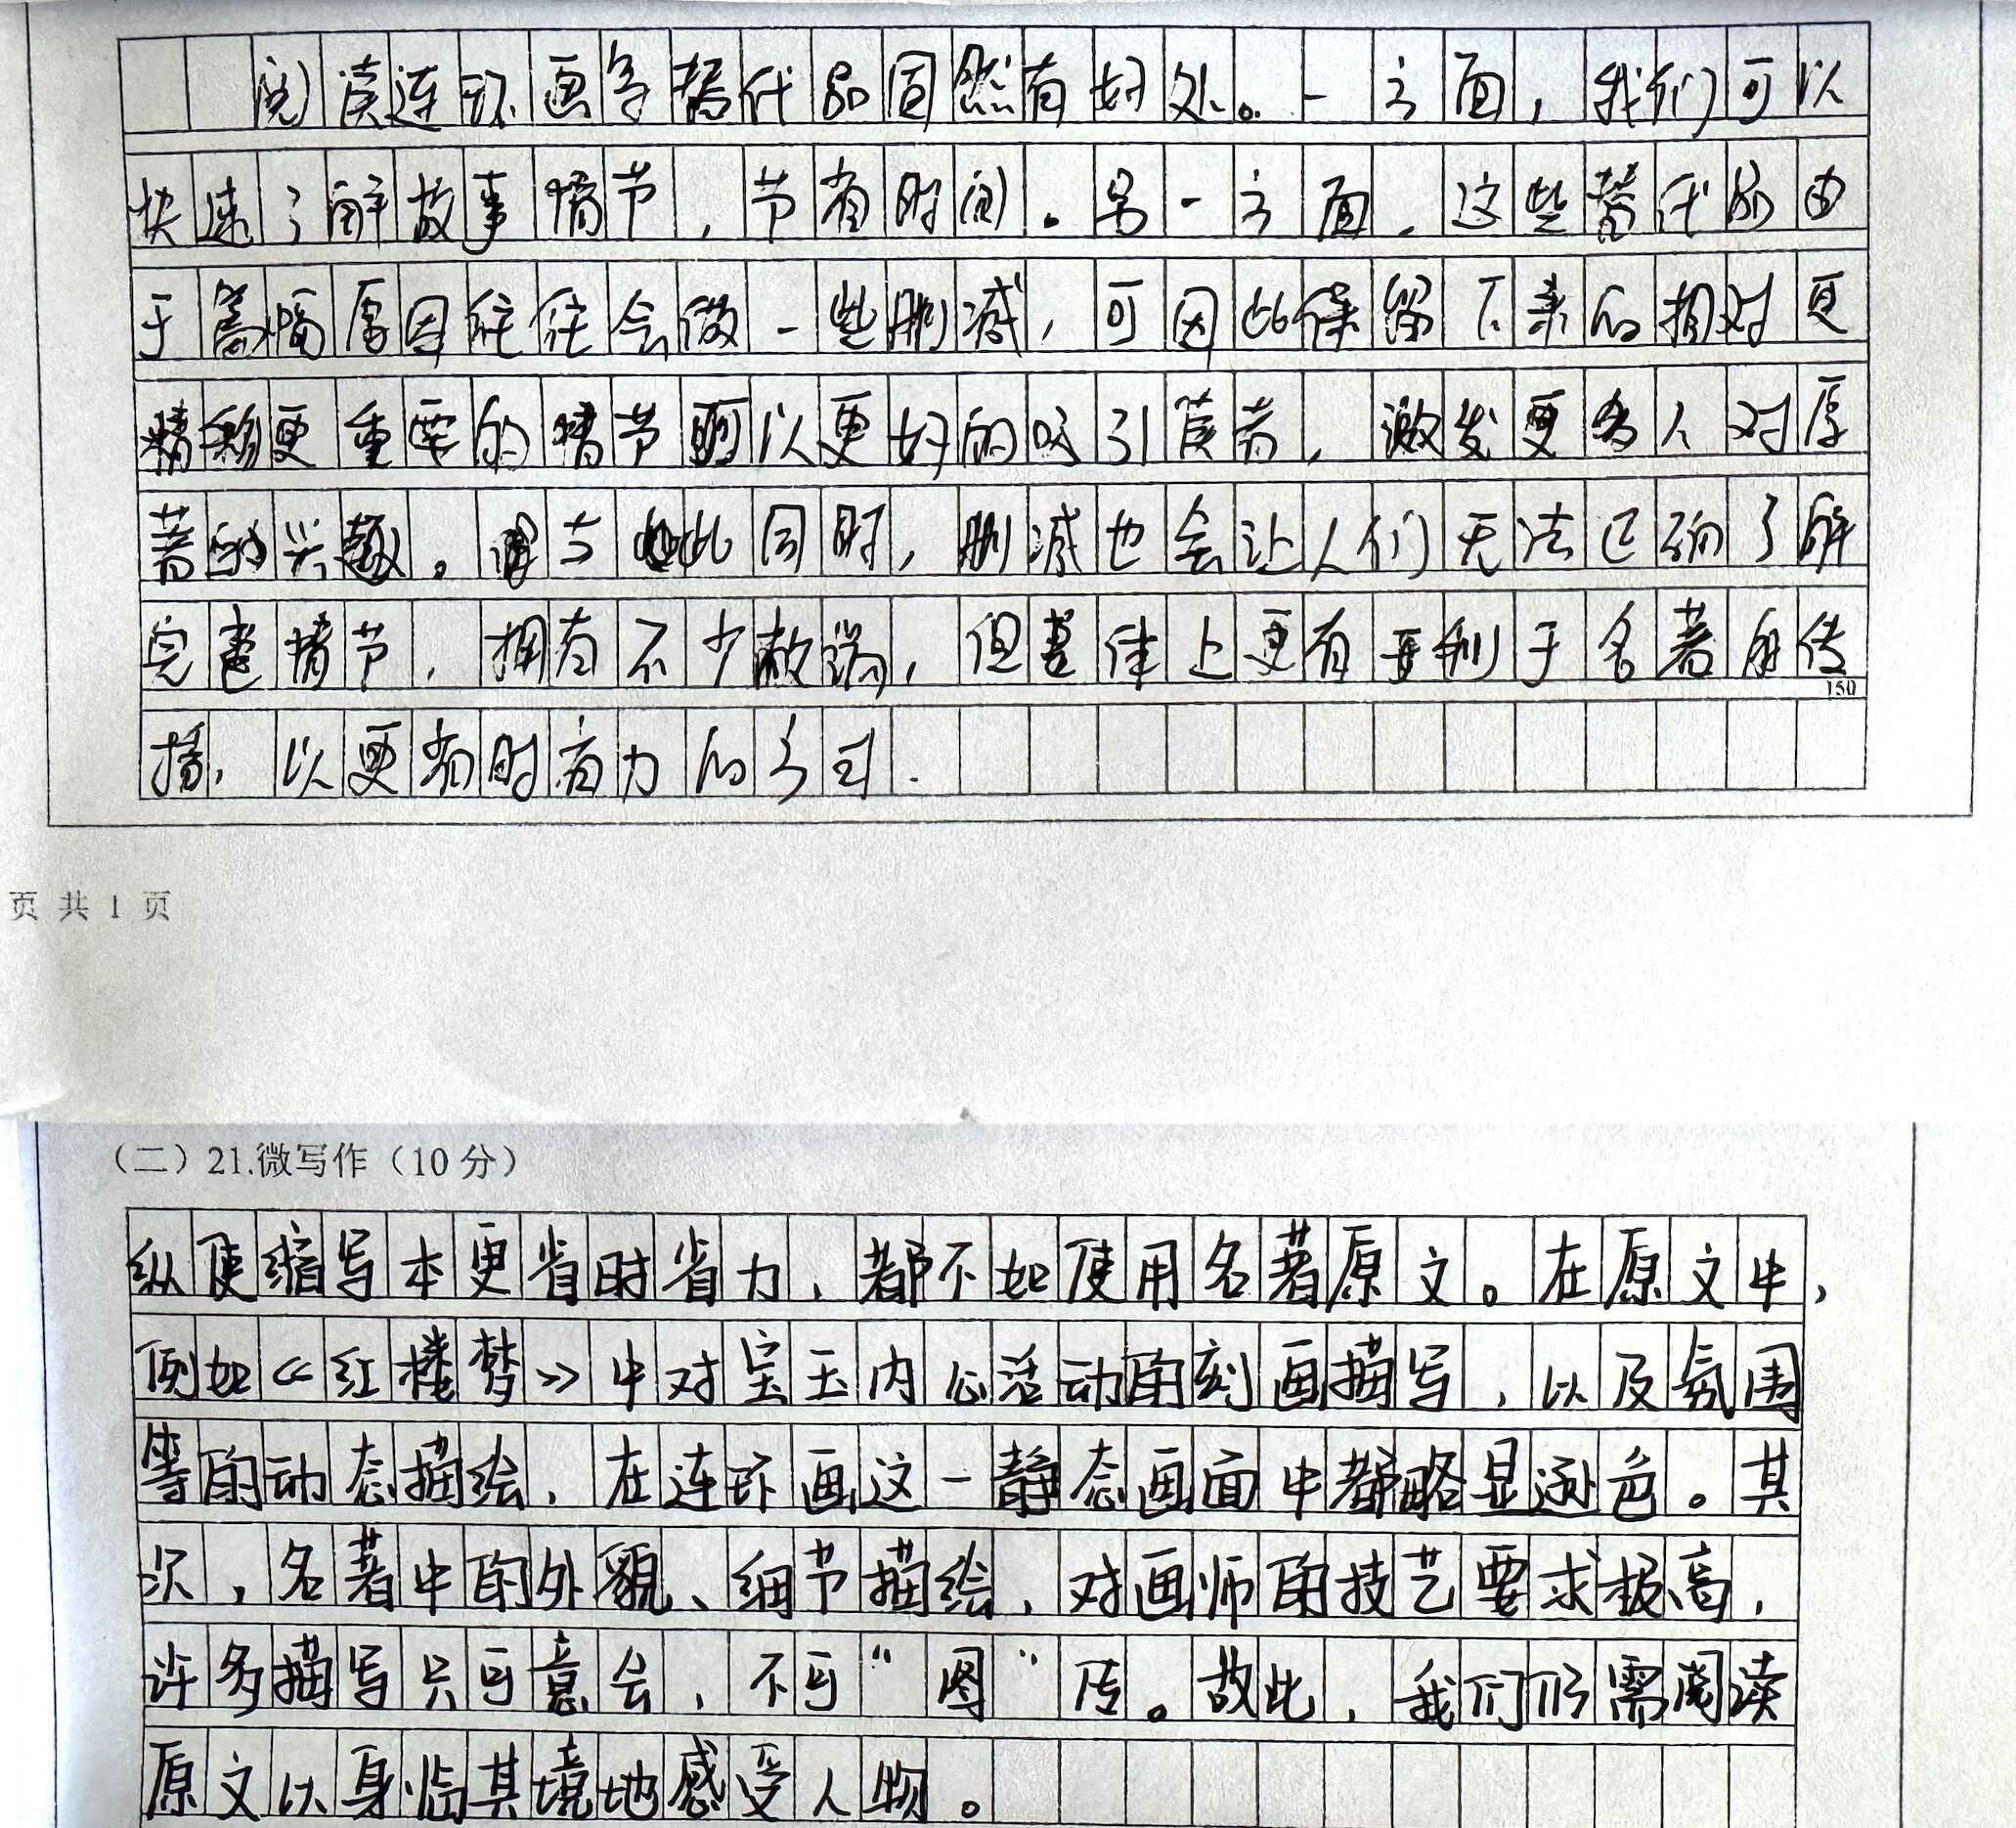 阅读连环画等替代品固然有好处。一方面，我们可以
快速了解故事情节，节省时间。另一方面，这些替代品由
于篇幅原因往往会做一些删减，可因此保留下来的相对更
精彩更重要的情节可以更好的吸引读者，激发更多人对原
著的兴趣。与此同时，删减也会让人们无法正确了解
完整情节，拥有不少敝端，但整体上更有利于名著的传
150
播，以更省时省力的方式.
页 共 1 页
（二）21.微写作（10 分）
纵使缩写本更省时省力，都不如使用名著原文。在原文中，
例如《红楼梦》中对宝玉内心活动的刻画描写，以及氛围
等的动态描绘，在连环画这一静态画面中都略显逊色。其
次，名著中的外貌、细节描绘，对画师的技艺要求极高，
许多描写只可意会，不可“图”传。故此，我们仍需阅读
原文以身临其境地感受人物。